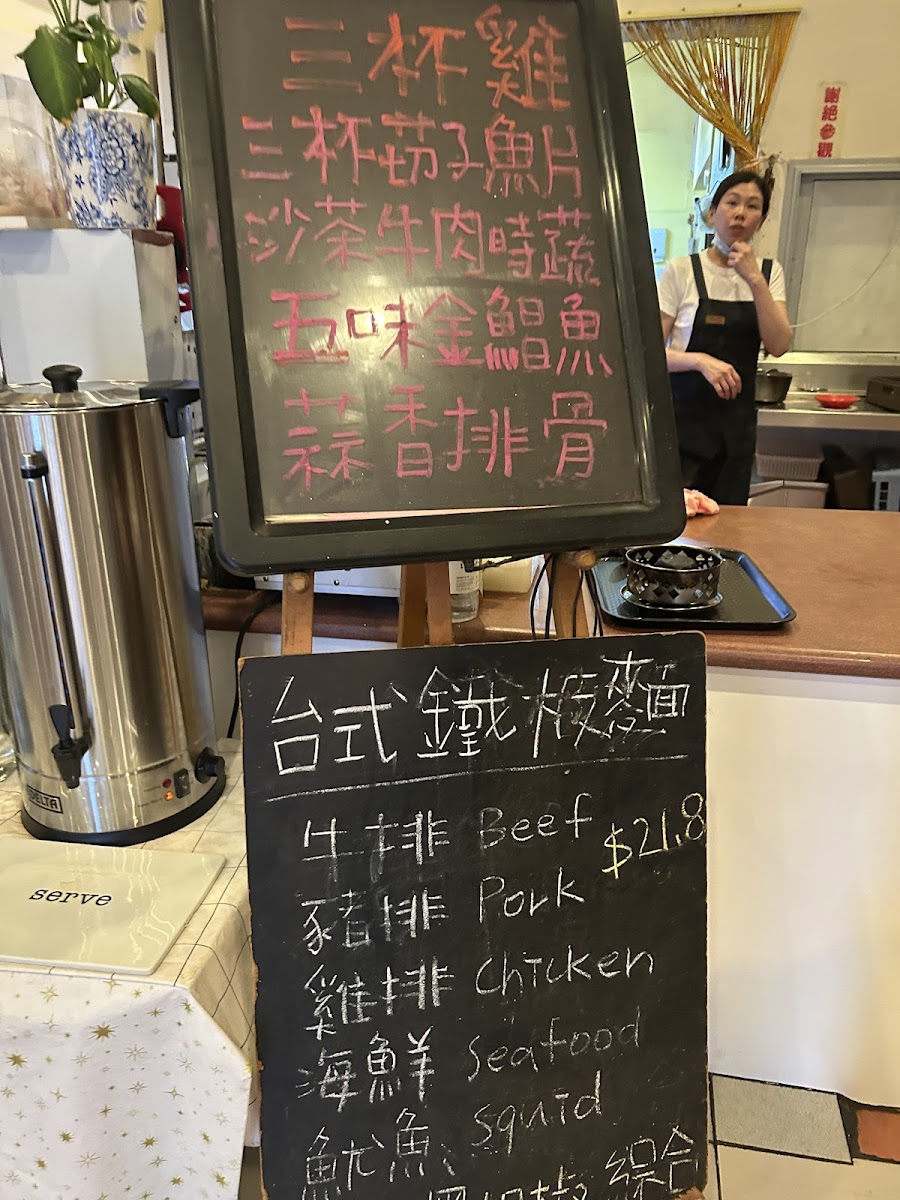 三杯雞
三杯茄子魚片
沙茶牛肉時蔬
五味金鯧魚
蒜香排骨
謝絕參觀
台式鐵板麵
牛排 Beef $21.8
豬排 Pork
雞排 Chicken
海鮮 Seafood
魷魚 squid
綜合
DELTA
serve